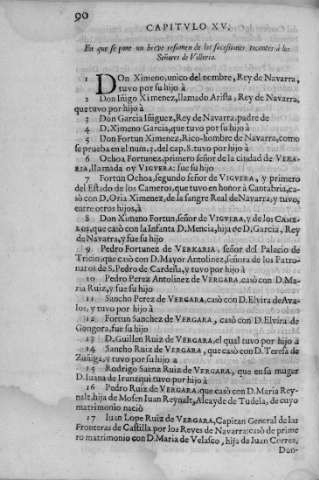 90
CAPITVLO XV.
En que se pone un breve resumen de las sucessiones tocantes á los
Señores de Villoria.
1 DOn Ximeno, unico del nombre, Rey de Navarra,
tuvo por su hijo à
2 Don Iñigo Ximenez, llamado Arista, Rey de Navarra,
que tuvo por hijo à
3 Don Garcia Iñiguez, Rey de Navarra, padre de
4 D. Ximeno Garcia, que tuvo por su hijo à
5 Don Fortun Ximenez, Rico-hombre de Navarra, como
se prueba en el num. 3. del cap. 8. tuvo por hijo à
6 Ochoa Fortunez, primero señor de la ciudad de VERA-
RIA, llamada oy VIGVERA: fue su hijo
7 Fortun Ochoa, segundo señor de VIGVERA, y primero
del Estado de los Cameros, que tuvo en honor à Cantabria, casò
con D. Oria Ximenez, de la sangre Real de Navarra, y tuvo,
entre otros hijos, à
8 Don Ximeno Fortun, señor de VIGVERA, y de los CAME-
ROS, que casò con la Infanta D. Mencia, hija de D. Garcia, Rey
de Navarra, y fue su hijo
9 Pedro Fortunez de VERKARIA, señor del Palacio de
Tricio, que casò con D. Mayor Antolinez, señora de los Patro-
natos de S. Pedro de Cardeña, y tuvo por hijo à
10 Pedro Perez Antolinez de VERGARA, casò con D. Ma-
ria Ruiz, y fue su hijo
11 Sancho Perez de VERGARA, casò con D. Elvira de Ava-
los, y tuvo por hijo à
12 Fortun Sanchez de VERGARA, casò con D. Elvira de
Gongora, fue su hijo
13 D. Guillen Ruiz de VERGARA, el qual tuvo por hijo à
14 Sancho Ruiz de VERGARA, que casò con D. Teresa de
Zuñiga, y tuvo por su hijo à
15 Rodrigo Saenz Ruiz de VERGARA, que en su muger
D. Iuana de Irunziqui tuvo por hijo à
16 Pedro Ruiz de VERGARA, que casò con D. Maria Rey-
nalt, hija de Mosen Iuan Reynalt, Alcayde de Tudela, de cuyo
matrimonio naciò
17 Iuan Lope Ruiz de VERGARA, Capitan General de las
Fronteras de Castilla por los Reyes de Navarra: casò de prime
ro matrimonio con D. Maria de Velasco, hija de Iuan Correa,
Don-